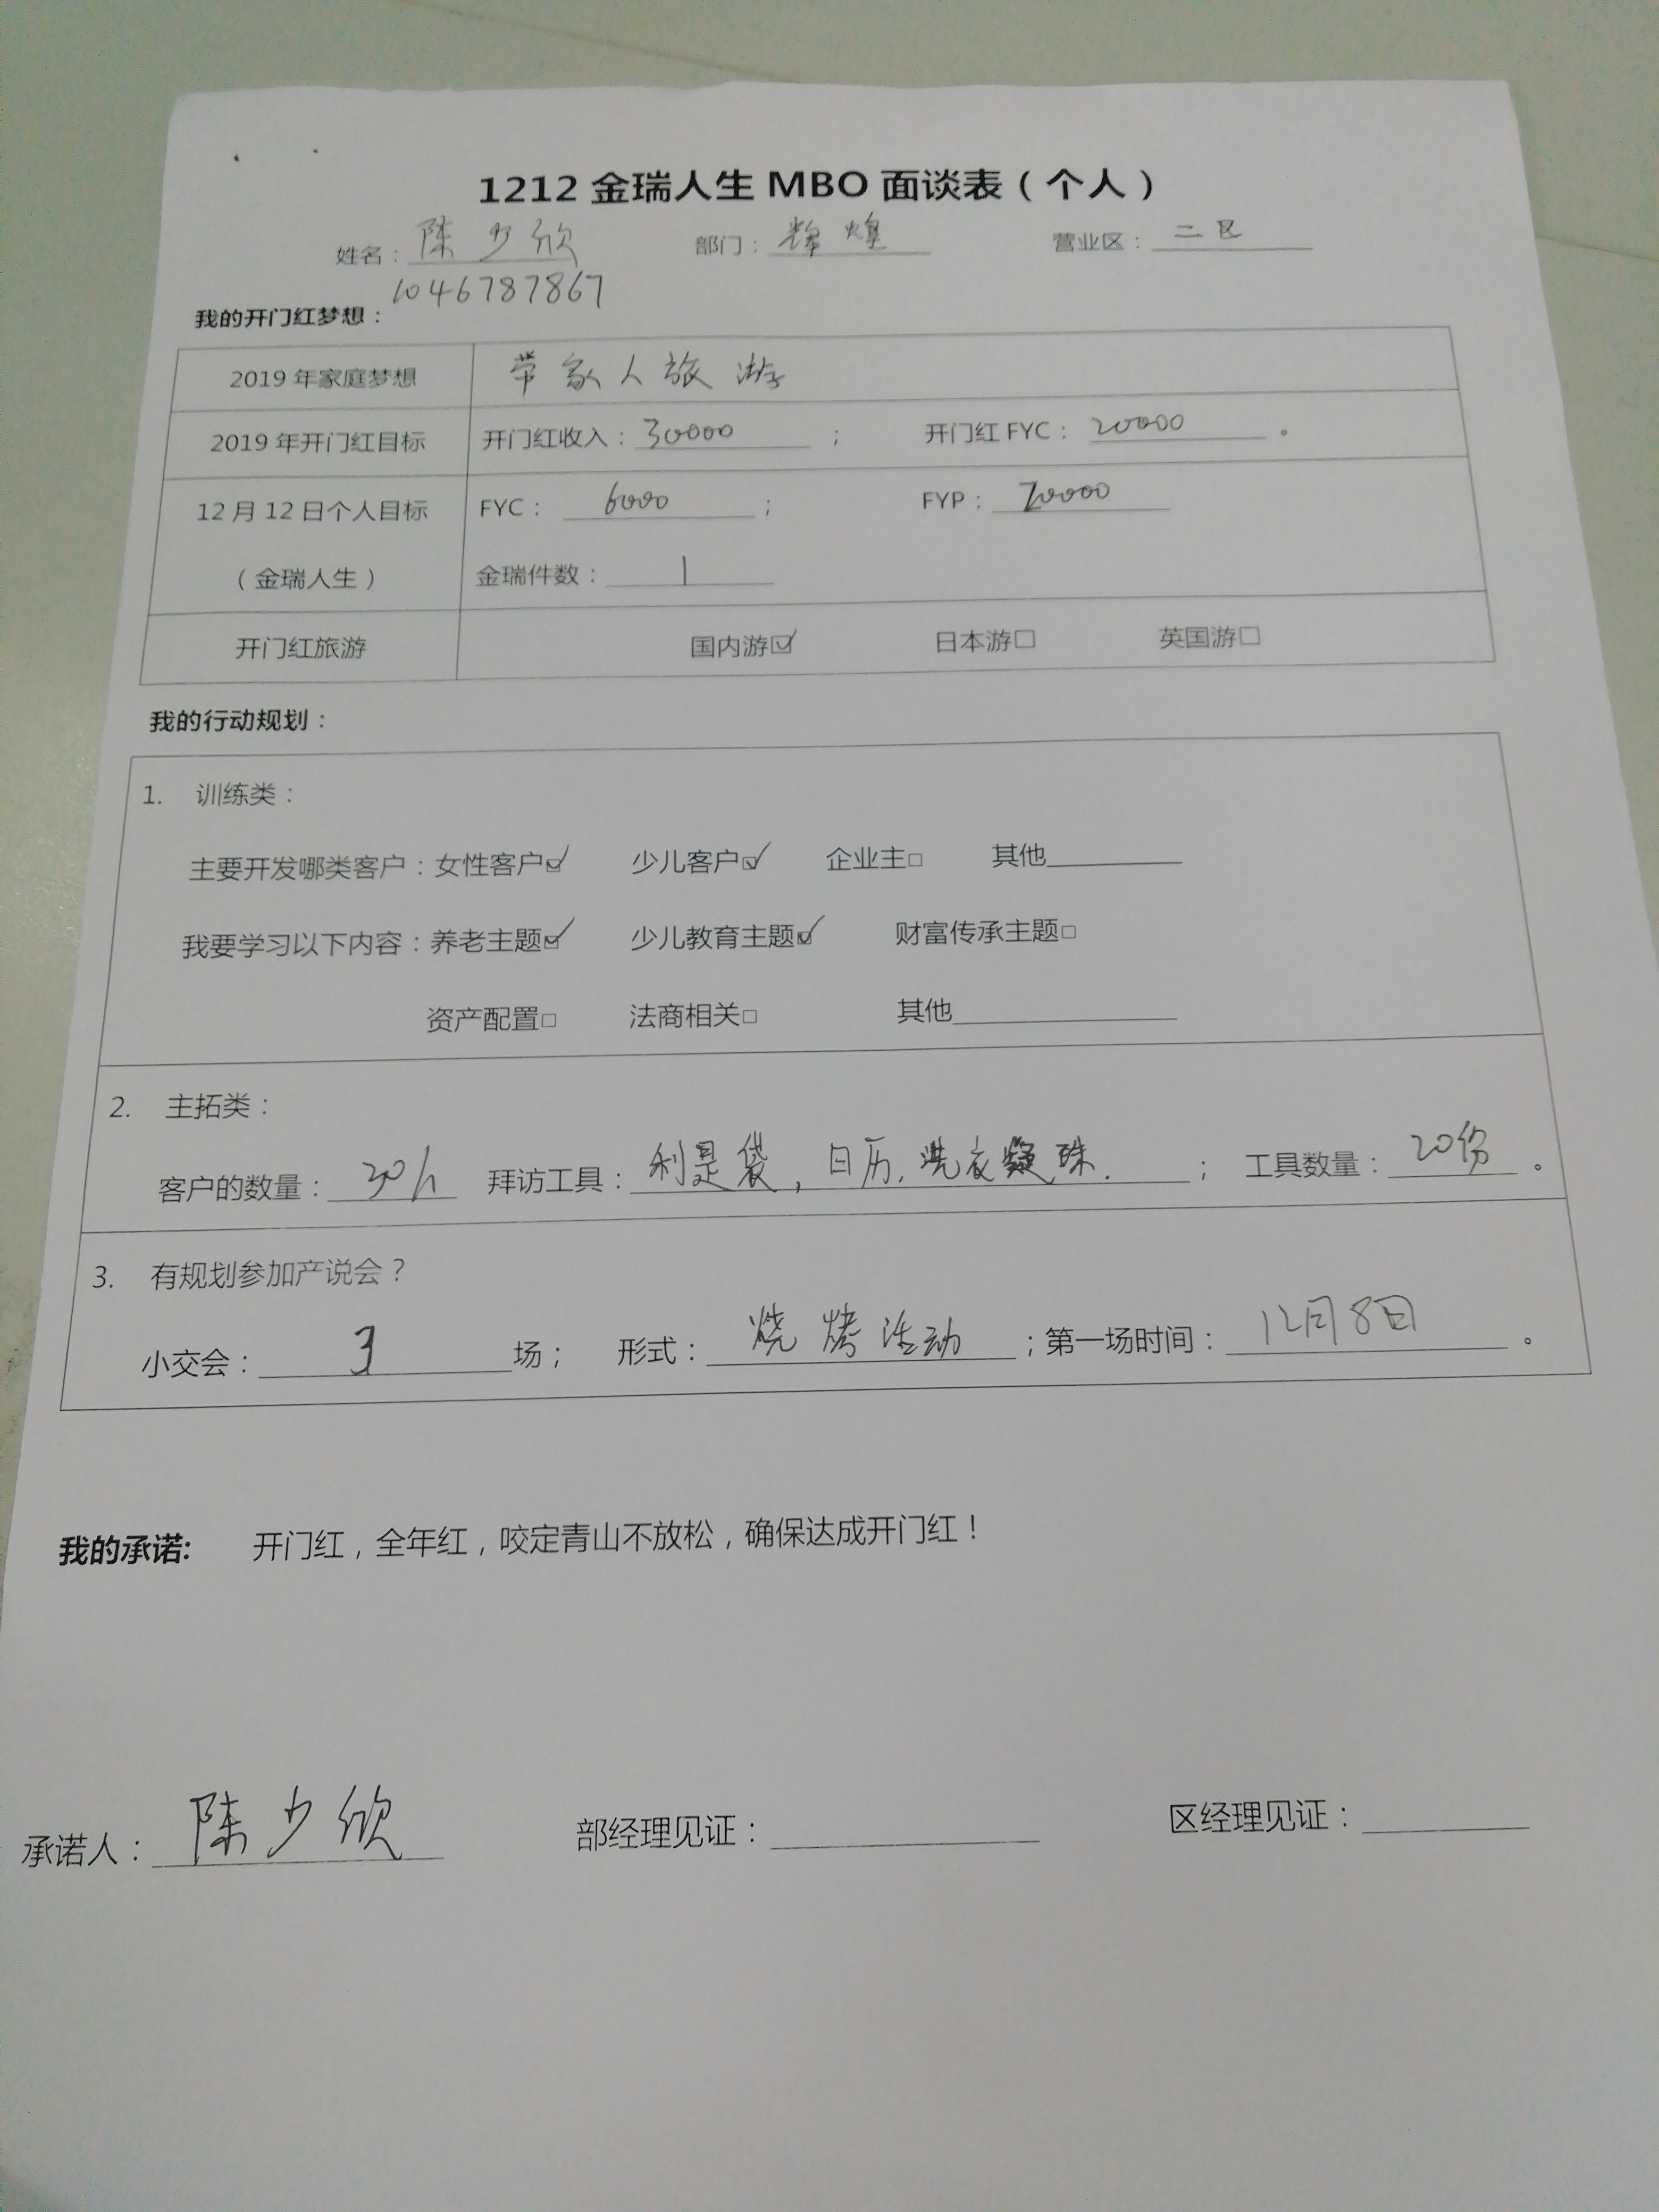 1212 金瑞人生 MBO 面谈表（个人）
姓名：陈少欣 部门：辉煌 营业区：二区
1046787867
我的开门红梦想：
2019 年家庭梦想 带家人旅游
2019 年开门红目标 开门红收入：30000 ； 开门红 FYC：20000 。
12 月 12 日个人目标 FYC：6000 ； FYP：20000
（金瑞人生） 金瑞件数：1
开门红旅游 国内游☑ 日本游□ 英国游□
我的行动规划：
1. 训练类：
主要开发哪类客户：女性客户☑ 少儿客户☑ 企业主□ 其他______
我要学习以下内容：养老主题☑ 少儿教育主题☑ 财富传承主题□
资产配置□ 法商相关□ 其他______
2. 主拓类：
客户的数量：30个 拜访工具：利是袋，日历，洗衣凝珠. ； 工具数量：20份 。
3. 有规划参加产说会？
小交会：3 场； 形式：烧烤活动 ；第一场时间：12月8日 。
我的承诺: 开门红，全年红，咬定青山不放松，确保达成开门红！
承诺人：陈少欣 部经理见证：______ 区经理见证：______